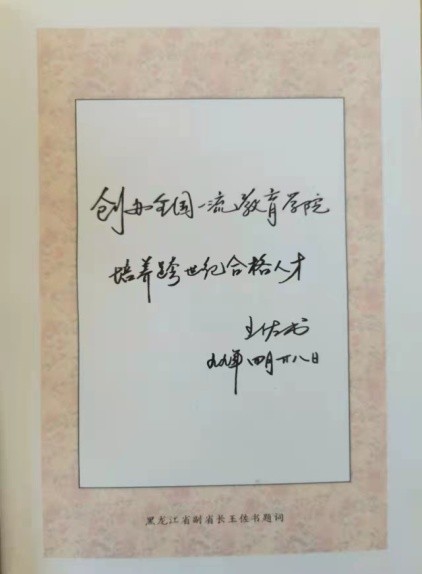 创办全国一流教育学院
培养跨世纪合格人才
王佐书
九九年四月廿八日
黑龙江省副省长王佐书题词